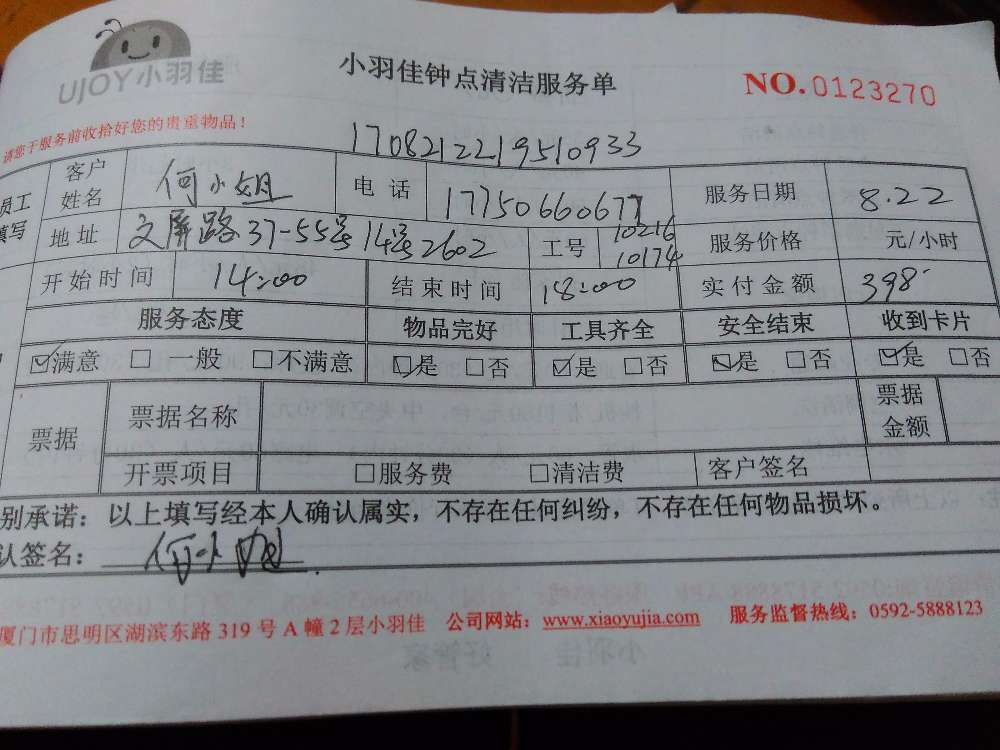 UJOY小羽佳
小羽佳钟点清洁服务单
NO.0123270
请您于服务前收拾好您的贵重物品！
1708212219510933
员工
填写
客户
姓名
何小姐
电话
17750660677
服务日期
8.22
地址
文屏路37-55号14号2602
工号
10216
10174
服务价格
元/小时
开始时间
14:00
结束时间
18:00
实付金额
398
服务态度
物品完好
工具齐全
安全结束
收到卡片
☑满意 □一般 □不满意
☑是 □否
☑是 □否
☑是 □否
☑是 □否
票据
票据名称
票据
金额
开票项目
□服务费 □清洁费
客户签名
别承诺：以上填写经本人确认属实，不存在任何纠纷，不存在任何物品损坏。
认签名：何小姐
厦门市思明区湖滨东路319号A幢2层小羽佳 公司网站：www.xiaoyujia.com 服务监督热线：0592-5888123